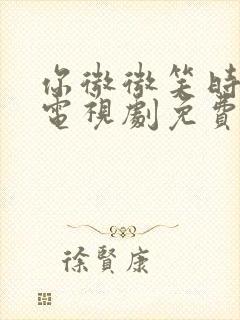 你微微笑時
電視劇免費
徐賢康